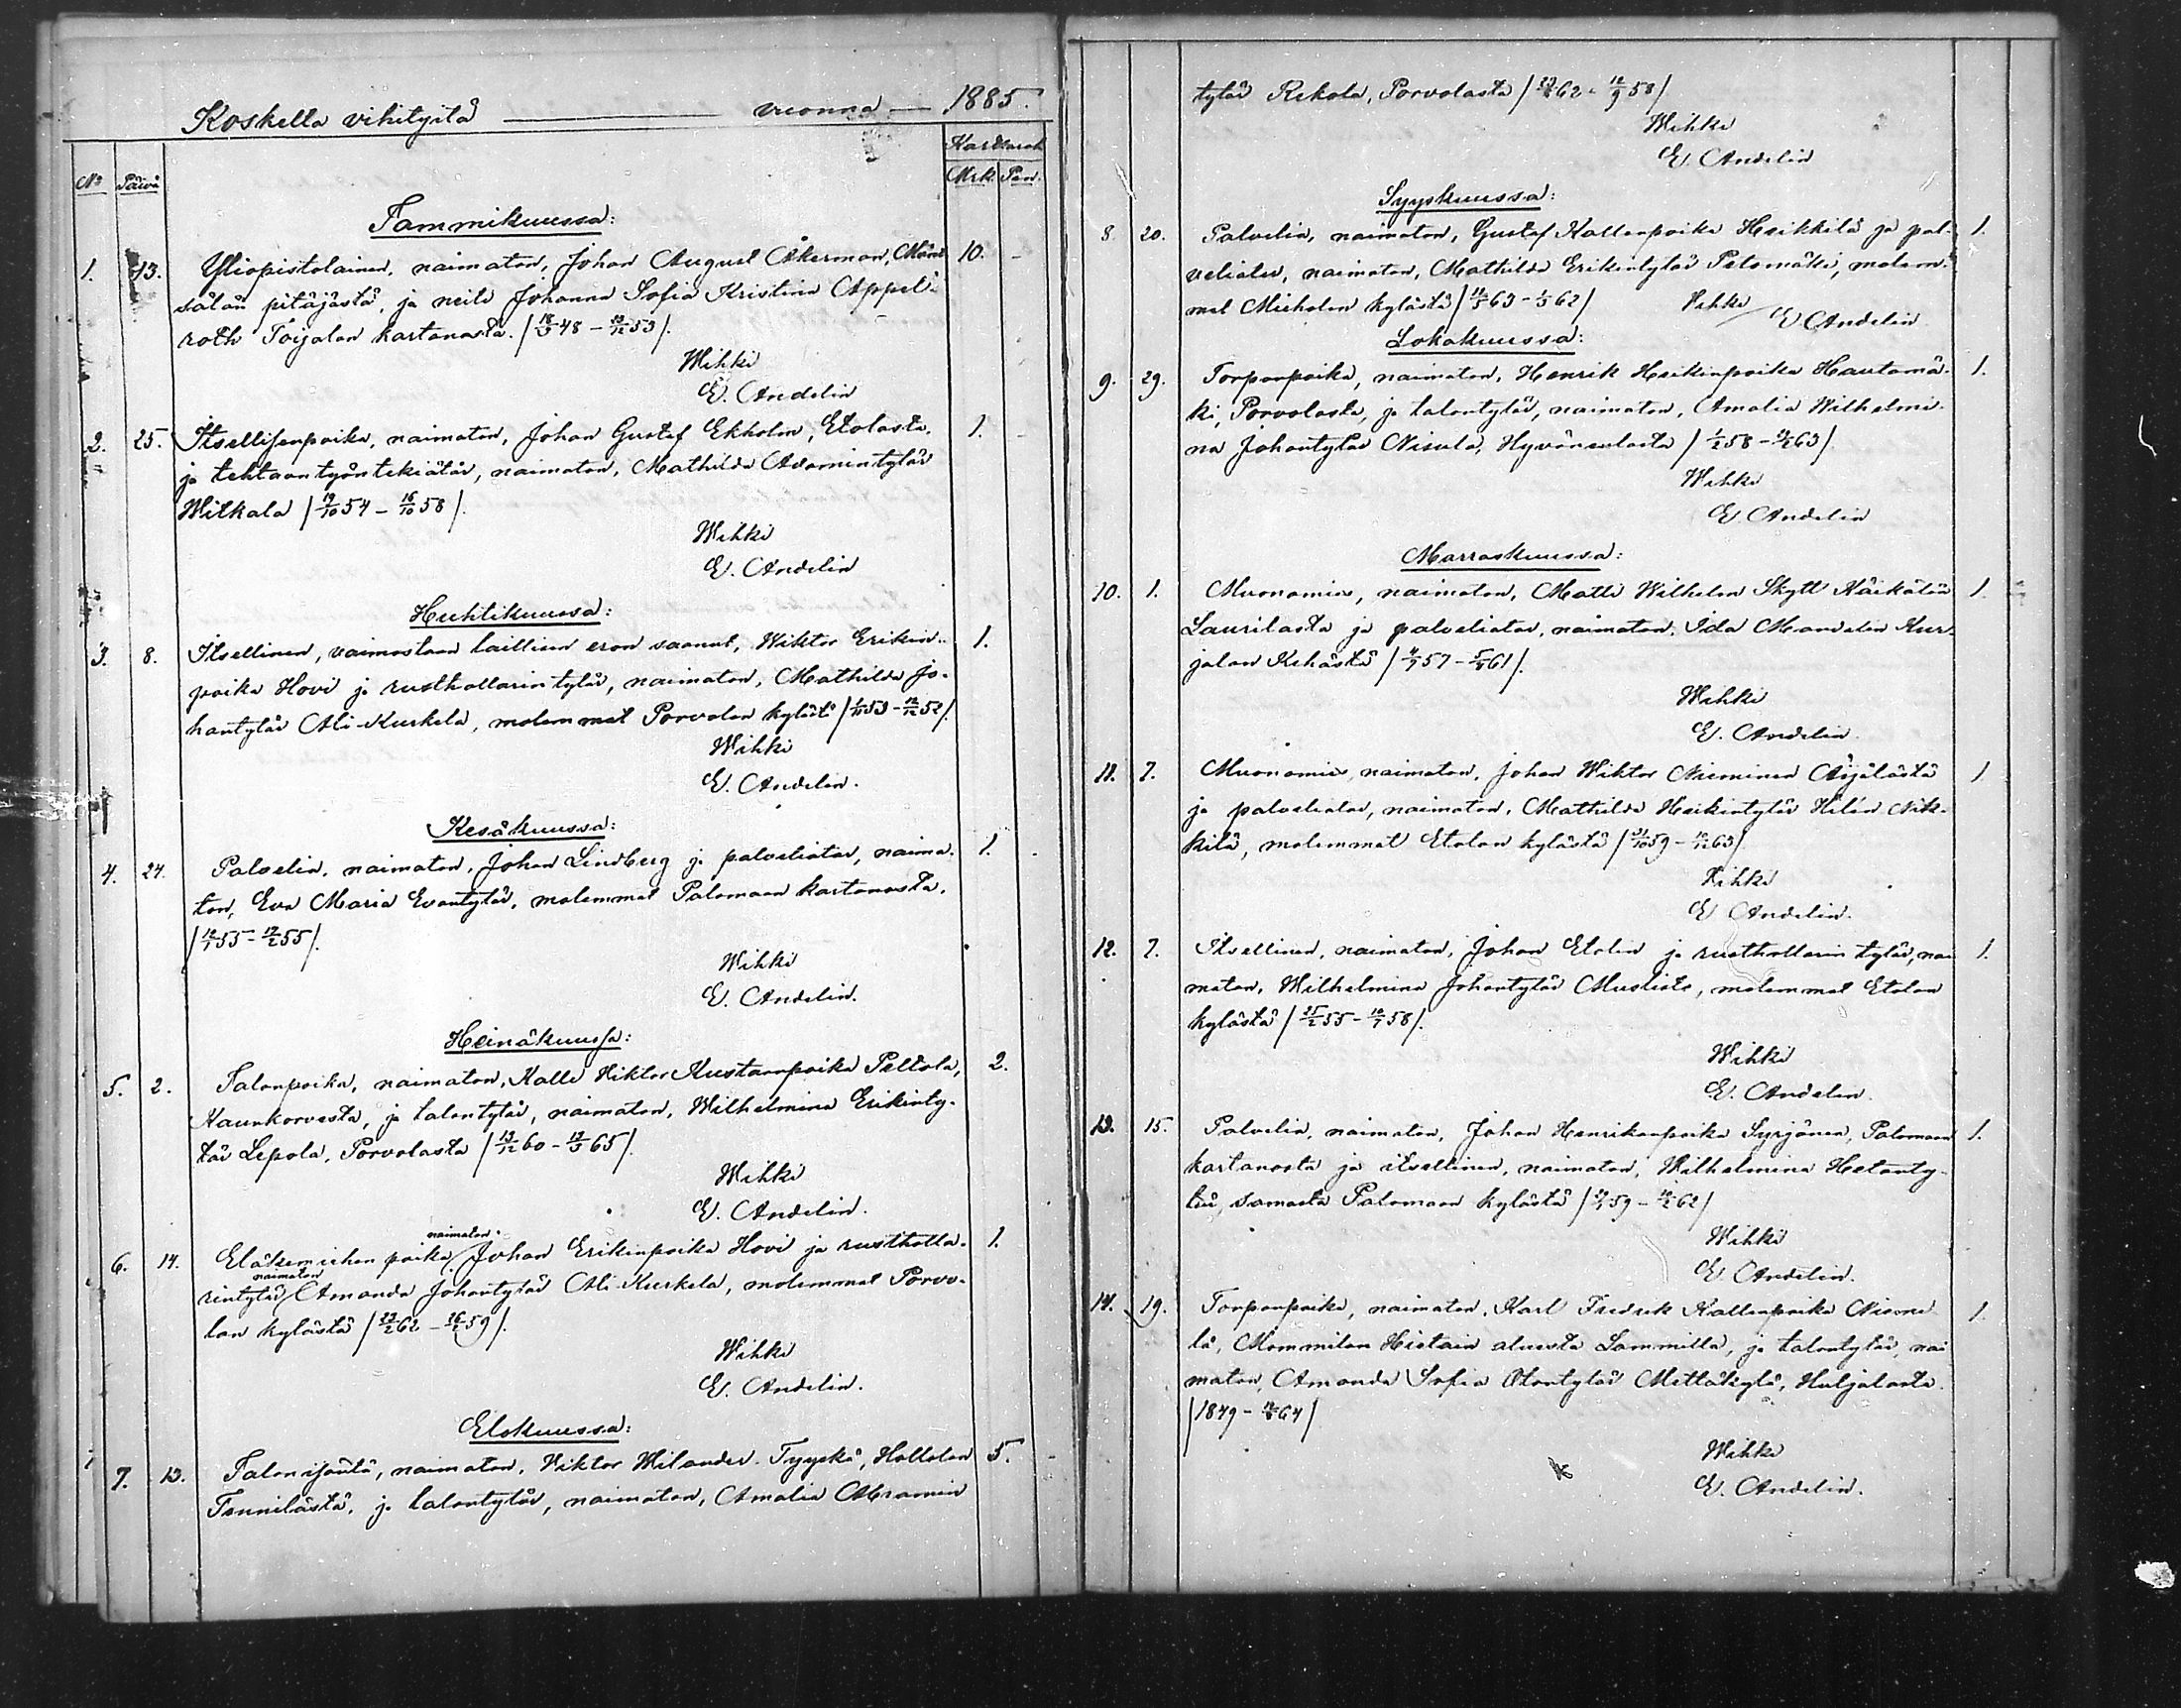 Koskella vihityitä vuonna 1885.
No Päivä Mrk. Pen.
Tammikuussa:
1. 13. Yliopistolainen, naimaton, Johan August Åkerman, Mänt- 10. -
sälän pitäjästä, ja neiti Johanna Sofia Kristina Appel-
roth Toijalan kartanosta. /48 - 53/.
Wihki
E. Andelin
2. 25. Itsellisenpoika, naimaton, Johan Gustaf Ekholm, Etolasta, 1. -
ja tehtaan työntekiätär, naimaton, Mathilda Adamintytär
Witkala /19/10 54 - 16/10 58/.
Wihki
E. Andelin
Huhtikuussa:
3. 8. Itsellinen, vaimostaan laillisen eron saanut, Wiktor Erikin- 1.
poika Hovi ja rusthollarin tytär, naimaton, Mathilda Jo-
hantytär Ali-Kurkela, molemmat Porvolan kylästä /53 - 52/.
Wihki
E. Andelin.
Kesäkuussa:
4. 24. Palvelia, naimaton, Johan Lindberg ja palveliatar, naima- 1.
ton, Eva Maria Evantytär, molemmat Palomaan kartanosta.
/55 - 55/.
Wihki
E. Andelin.
Heinäkuussa:
5. 2. Talonpoika, naimaton, Kalle Wiktor Kustaanpoika Peltola, 2.
Kaunkorvesta, ja talontytär, naimaton, Wilhelmina Erikinty-
tär Lepola, Porvolasta /13/12 60 - 65/.
Wihki
E. Andelin.
naimaton.
6. 14. Eläkemiehen poika, Johan Erikinpoika Hovi ja rustholla- 1.
naimaton
rintytär Amanda Johantytär Ali-Kurkela, molemmat Porvo-
lan kylästä /62 - 59/.
Wihki
E. Andelin.
Elokuussa:
7. 13. Talonisäntä, naimaton, Wiktor Wilander Tyyskä, Hollolan 5. -
Tennilästä, ja talontytär, naimaton, Amalia Abramin
tytär Rekola, Porvolasta /62 - 58/
Wihki
E. Andelin
Syyskuussa:
8. 20. Palvelia, naimaton, Gustaf Kallenpoika Heikkilä ja pal- 1.
veliatar, naimaton, Mathilda Erikintytär Petomäki, molem-
mat kylästä /63 - 62/ Wihki
E. Andelin
Lokakuussa:
9. 29. Torpanpoika, naimaton, Henrik Heikinpoika Hautamä- 1.
ki, Porvolasta, ja talontytär, naimaton, Amalia Wilhelmi-
na Johantytär Nisula, Hyväneulasta /1/2 58 - 63/
Wihki
E. Andelin
Marraskuussa:
10. 1. Muonamies, naimaton, Matti Wilhelm Skytt 1.
Laurilasta ja palveliatar, naimaton, Ida Mandelin Kur-
jalan /57 - 61/.
Wihki
E. Andelin.
11. 7. Muonamies, naimaton, Johan Wiktor Nieminen Äijälästä 1
ja palveliatar, naimaton, Mathilda Heikintytär Hilén Nik-
kilä, molemmat Etolan kylästä /59 - 63/
Wihki
E. Andelin.
12. 7. Itsellinen, naimaton, Johan Etolin ja rusthollarin tytär, nai 1.
maton, Wilhelmina Johantytär, molemmat Etolan
kylästä /55 - 58/.
Wihki
E. Andelin.
13. 15. Palvelia, naimaton, Johan Henrikanpoika Syrjänen, Palomaan 1.
kartanosta ja itsellinen, naimaton, Wilhelmina
samasta Palomaan kylästä /59 - 62/
Wihki
E. Andelin.
14. 19. Torpanpoika, naimaton, Karl Fredrik Kallenpoika Nieme- 1.
lä, Mommilan Hietain aluesta Lammilla, ja talontytär, nai
maton, Amanda Sofia Otontytär Mettäkylä, Huljalasta.
/1849 - 64/
Wihki
E. Andelin.